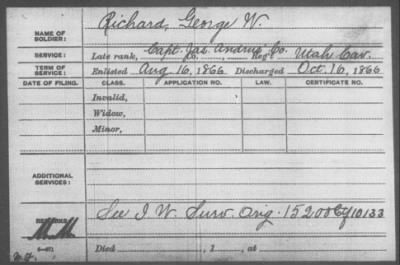 NAME OF SOLDIER: Richard, George W.
SERVICE: Late rank, Capt. Jas. Andrus Co. Reg't Utah Cav.
TERM OF SERVICE: Enlisted Aug 16, 1866 Discharged Oct. 16, 1866
DATE OF FILING. CLASS. APPLICATION NO. LAW. CERTIFICATE NO.
Invalid,
Widow,
Minor,
ADDITIONAL SERVICES:
REMARKS: See I. W. Surv. Orig. 15200 Cf 10133
Died , 1 , at